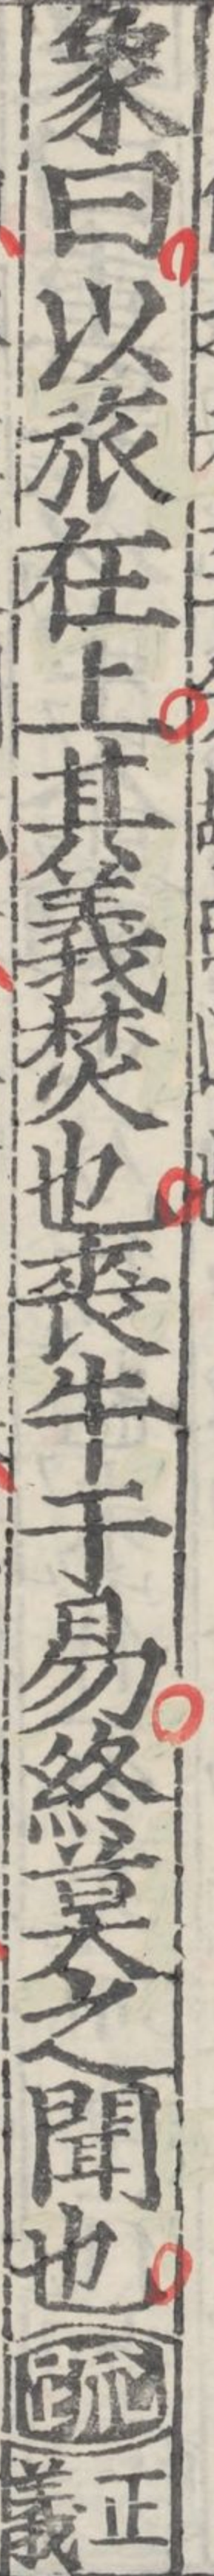 象曰以旅在上其義焚也喪牛于易終莫之聞也疏正義